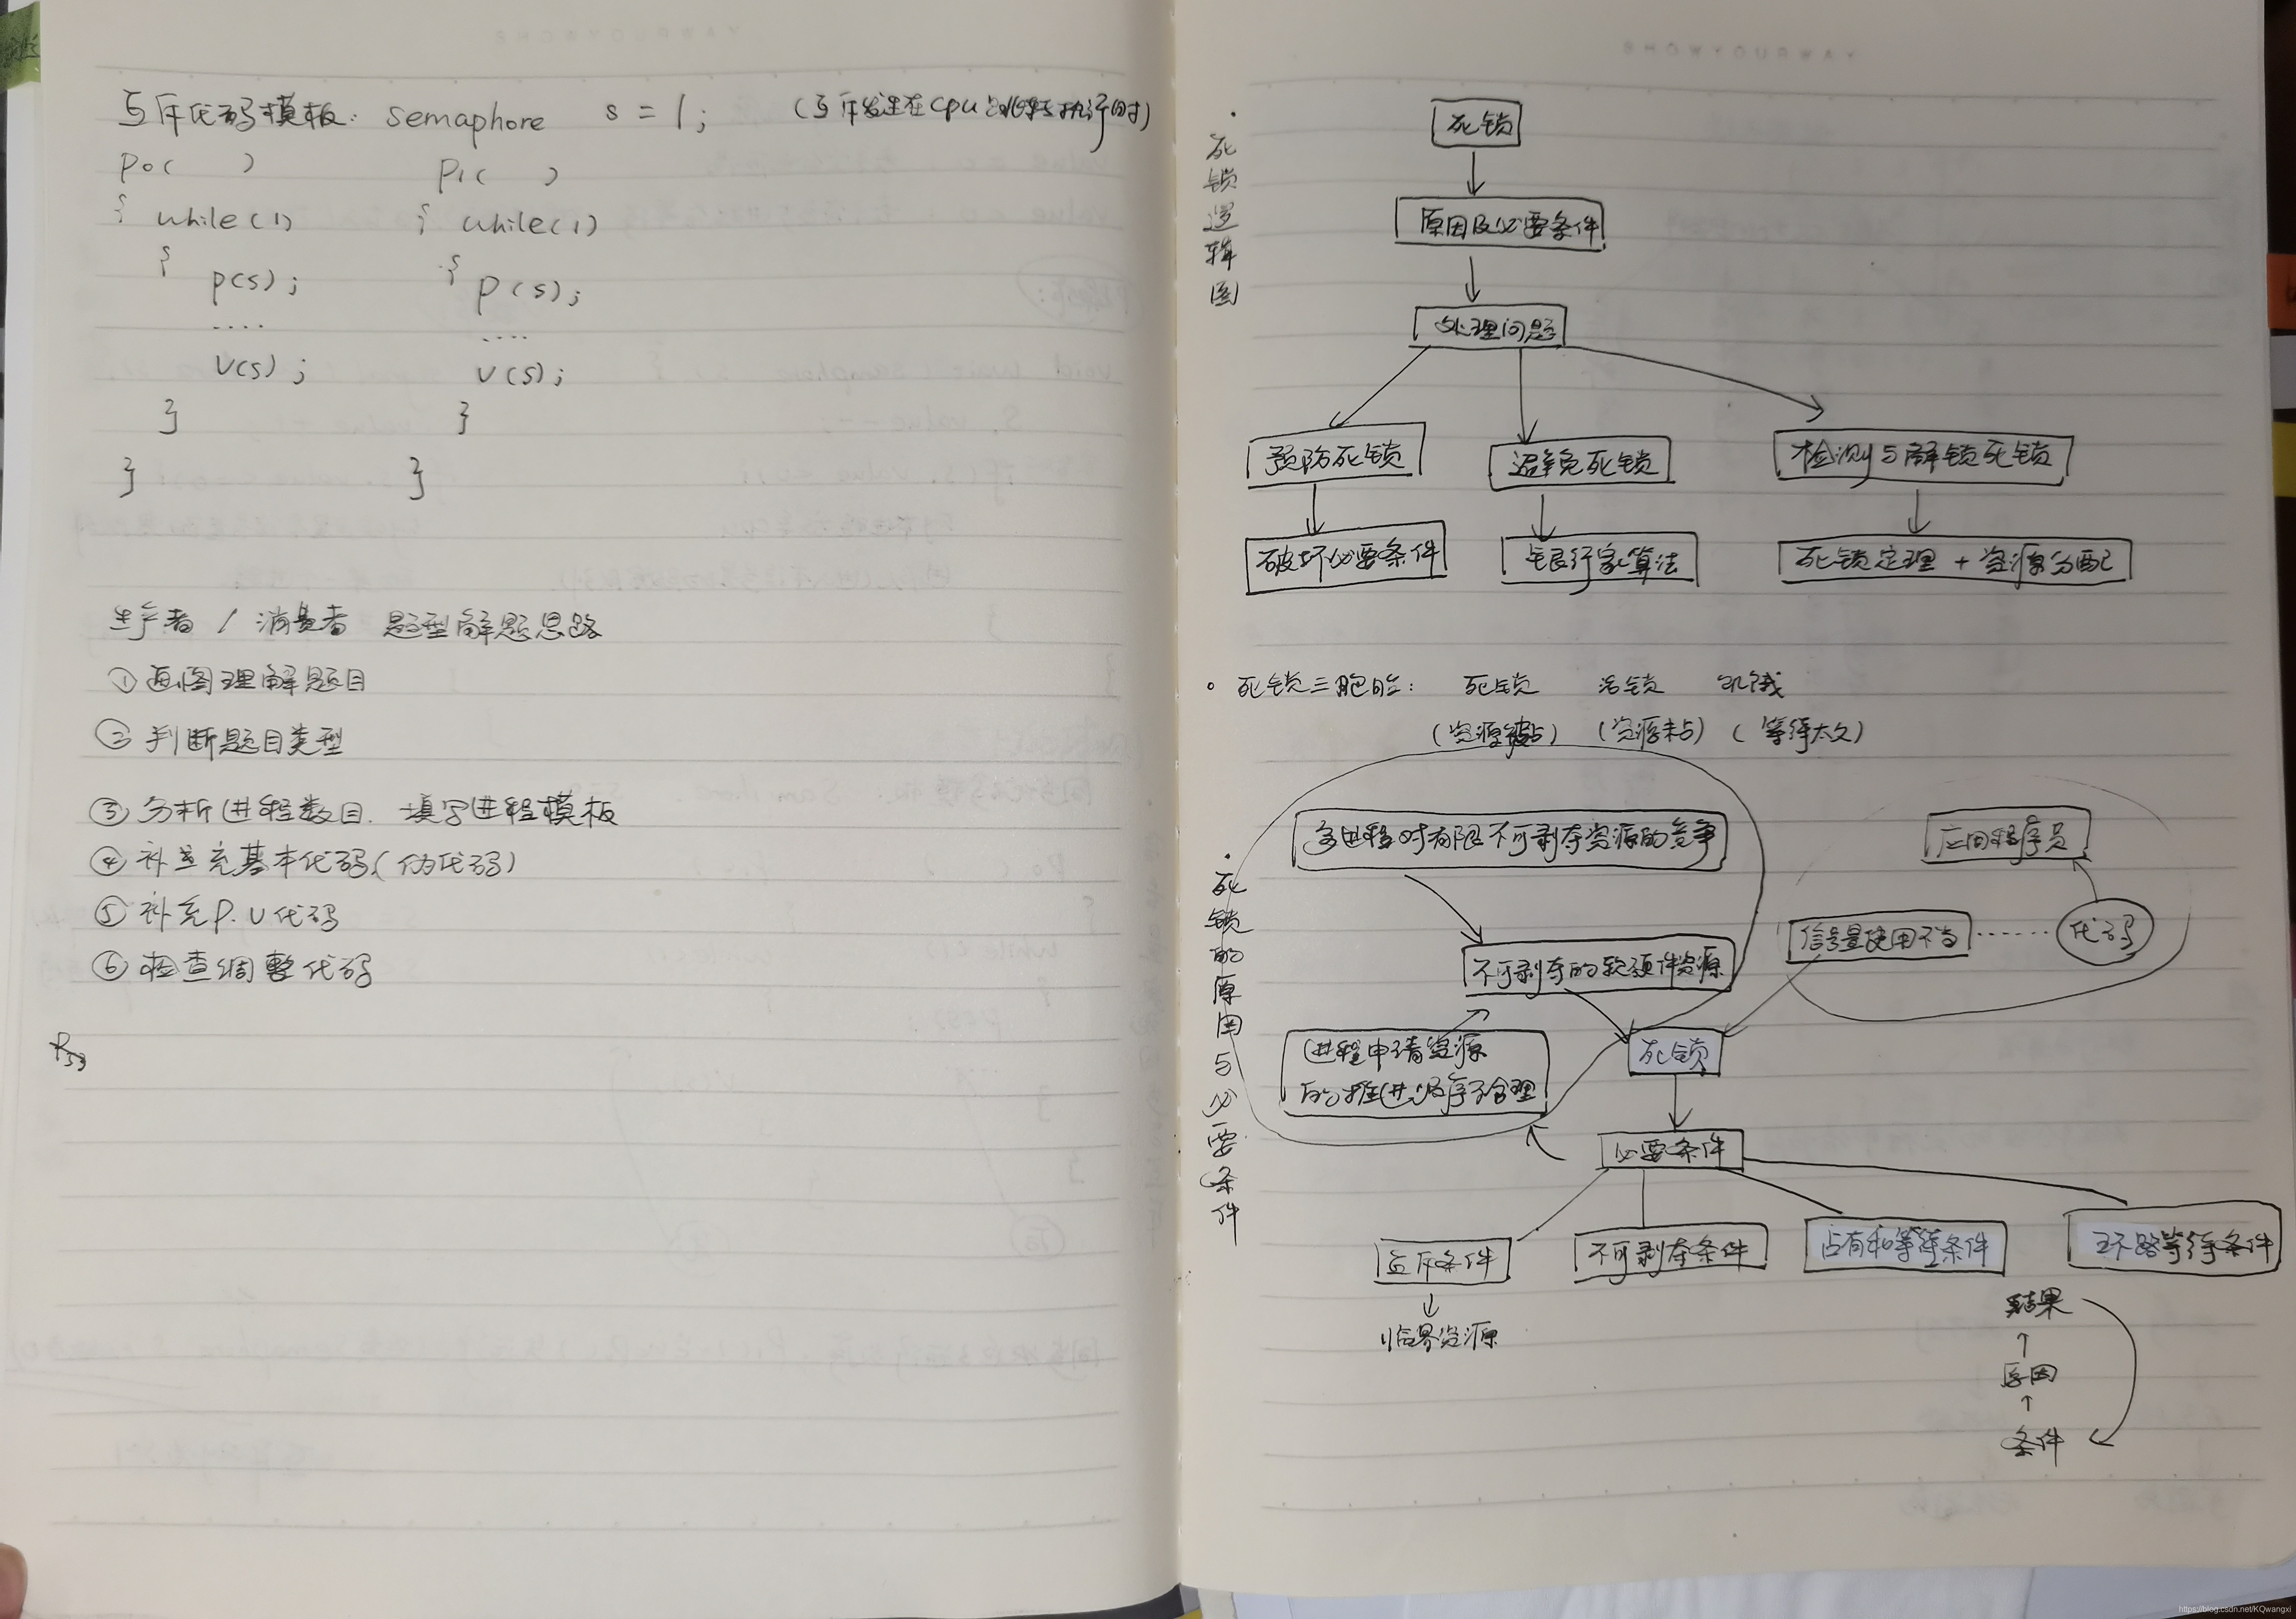 互斥代码模板: semaphore s = 1; (互斥发生在cpu 执行时)
P0( ) P1( )
{ while(1) { while(1)
{ {
p(s); p(s);
.... ....
v(s); v(s);
} }
} }
生产者 / 消费者 题型解题思路
① 画图理解题目
② 判断题目类型
③ 分析进程数目. 填写进程模板
④ 补充基本代码(伪代码)
⑤ 补充P.V代码
⑥ 检查调整代码
P53
YAWRUOYWOHS
· 死锁逻辑图
死锁
原因及必要条件
处理问题
预防死锁 避免死锁 检测与解锁死锁
破坏必要条件 银行家算法 死锁定理 + 资源分配
。死锁三胞胎: 死锁 活锁 饥饿
(资源被占) (资源未占) (等待太久)
· 死锁的原因与必要条件
多进程对有限不可剥夺资源的竞争 应用程序员
不可剥夺的软硬件资源 信号量使用不当 ...... 代码
进程申请资源
的推进顺序不合理
死锁
必要条件
互斥条件 不可剥夺条件 占有和等待条件 环路等待条件
临界资源
结果
原因
条件
https://blog.csdn.net/KQwangxi